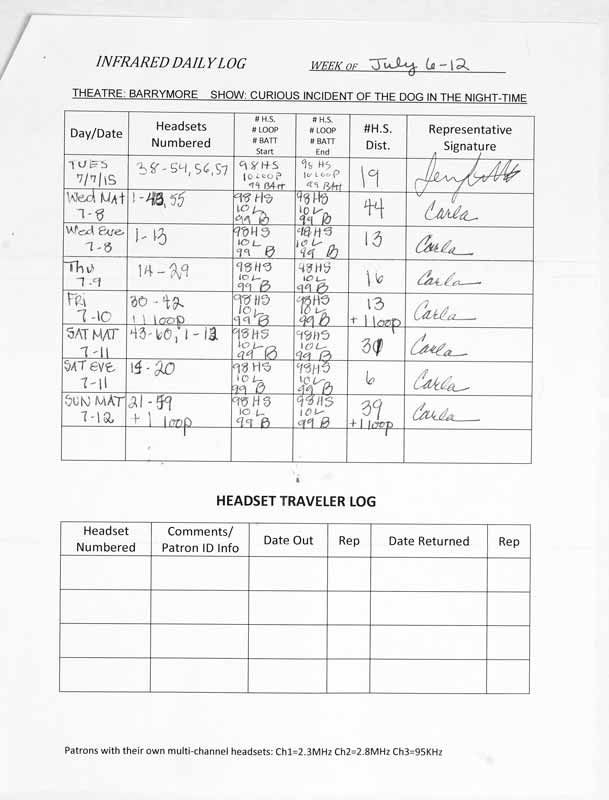 INFRARED DAILY LOG WEEK OF July 6-12
THEATRE: BARRYMORE SHOW: CURIOUS INCIDENT OF THE DOG IN THE NIGHT-TIME
Day/Date Headsets Numbered # H.S. # LOOP # BATT Start # H.S. # LOOP # BATT End #H.S. Dist. Representative Signature
TUES 7/7/15 38-54,56,57 98 HS 10 LOOP 99 BATT 98 HS 10 LOOP 99 BATT 19
Wed MAT 7-8 1-43,55 98 HS 10 L 99 B 98 HS 10 L 99 B 44 Carla
Wed Eve 7-8 1-13 98 HS 10 L 99 B 98 HS 10 L 99 B 13 Carla
Thu 7-9 14-29 98 HS 10 L 99 B 98 HS 10 L 99 B 16 Carla
FRI 7-10 30-42 +1 loop 98 HS 10 L 99 B 98 HS 10 L 99 B 13 +1 loop Carla
SAT MAT 7-11 43-60, 1-12 98 HS 10 L 99 B 98 HS 10 L 99 B 30 Carla
SAT EVE 7-11 15-20 98 HS 10 L 99 B 98 HS 10 L 99 B 6 Carla
SUN MAT 7-12 21-59 +1 loop 98 HS 10 L 99 B 98 HS 10 L 99 B 39 +1 loop Carla
HEADSET TRAVELER LOG
Headset Numbered Comments/ Patron ID Info Date Out Rep Date Returned Rep
Patrons with their own multi-channel headsets: Ch1=2.3MHz Ch2=2.8MHz Ch3=95KHz